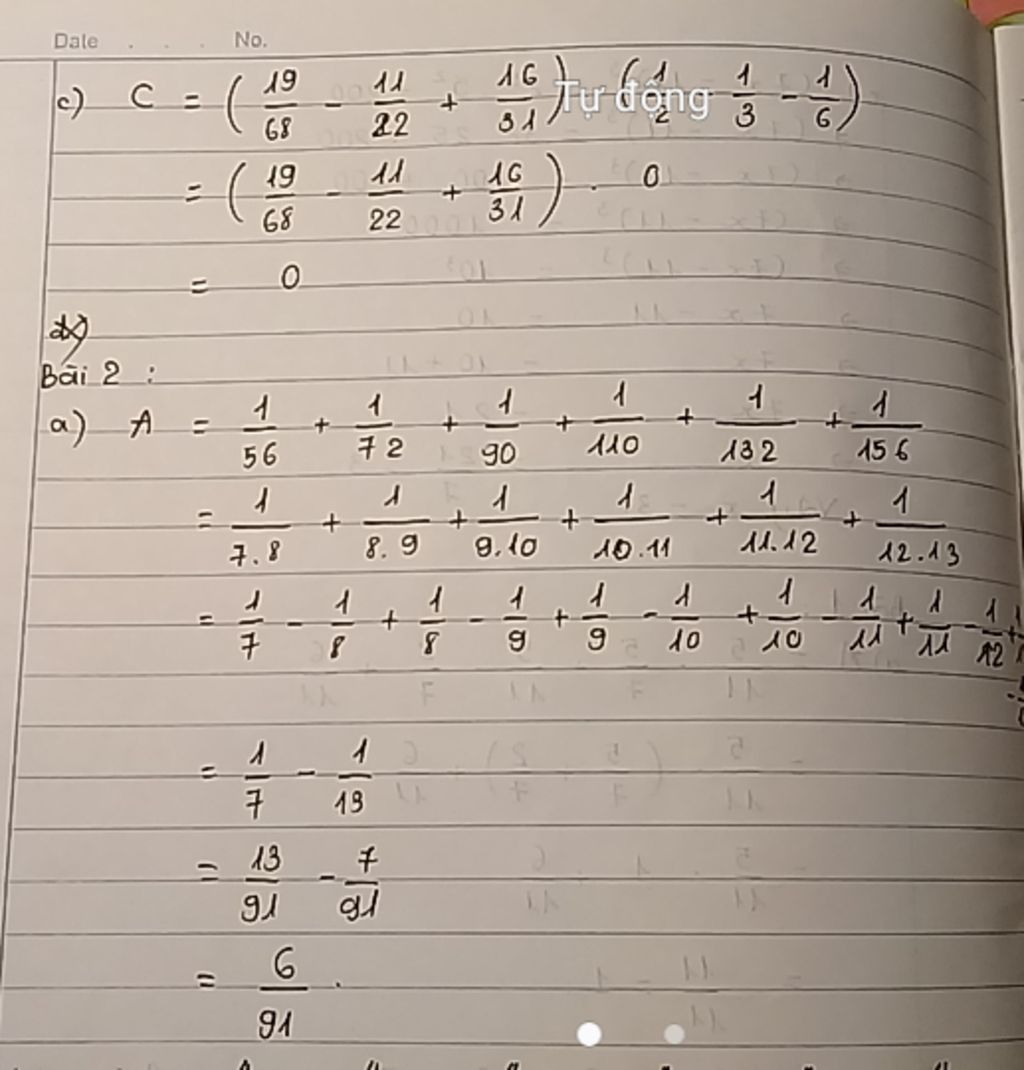 Date . . . No.
c) C = ( 19/68 - 11/22 + 16/31 ) Tự động ( 1/2 1/3 - 1/6 )
= ( 19/68 - 11/22 + 16/31 ) . 0
= 0
Bài 2 :
a) A = 1/56 + 1/72 + 1/90 + 1/110 + 1/132 + 1/156
= 1/7.8 + 1/8.9 + 1/9.10 + 1/10.11 + 1/11.12 + 1/12.13
= 1/7 - 1/8 + 1/8 - 1/9 + 1/9 - 1/10 + 1/10 - 1/11 + 1/11 - 1/12 +
= 1/7 - 1/13
= 13/91 - 7/91
= 6/91 .